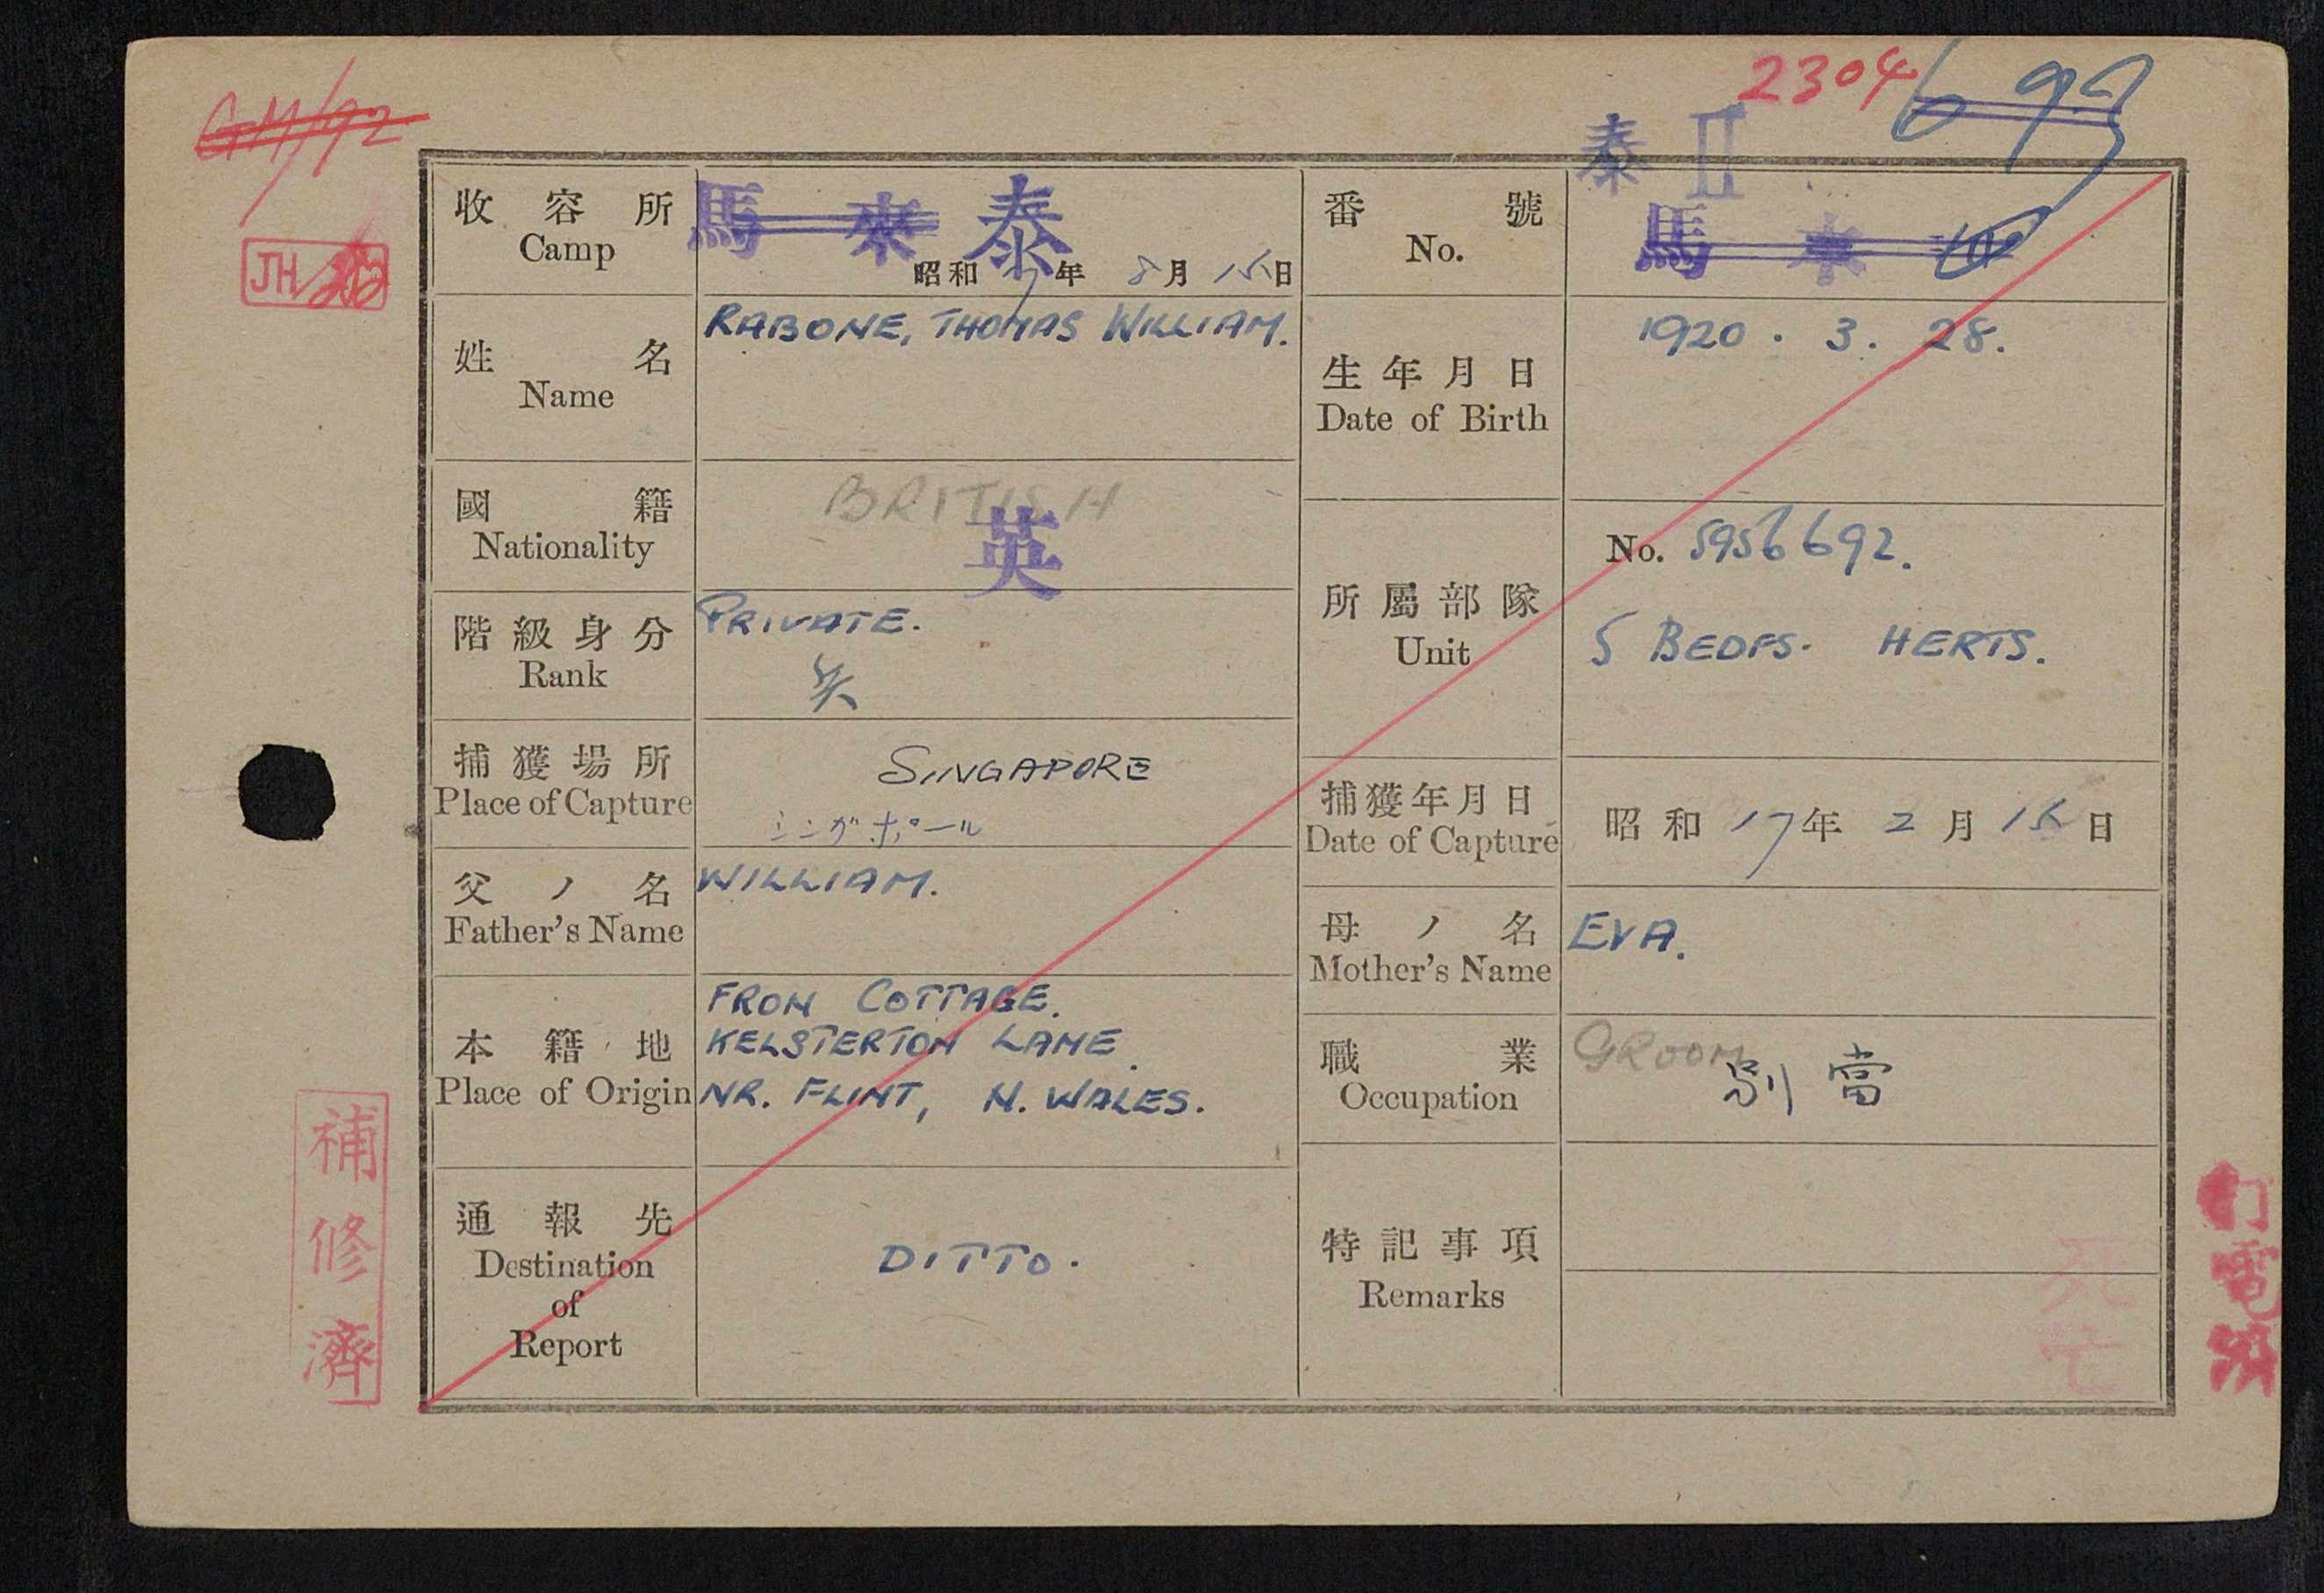 2304
泰 II
収容所
Camp
馬来 泰
昭和17年 8月 15日
番號
No.
馬来
JH
姓名
Name
RABONE, THOMAS WILLIAM.
生年月日
Date of Birth
1920. 3. 28.
國籍
Nationality
BRITISH
英
階級身分
Rank
PRIVATE.
兵
所屬部隊
Unit
No. 5956692.
5 BEDFS. HERTS.
捕獲場所
Place of Capture
SINGAPORE
シンガポール
捕獲年月日
Date of Capture
昭和17年 2月 15日
父ノ名
Father's Name
WILLIAM.
母ノ名
Mother's Name
EVA.
本籍地
Place of Origin
FRON COTTAGE.
KELSTERTON LANE.
NR. FLINT, N. WALES.
職業
Occupation
GROOM
別當
通報先
Destination
of
Report
DITTO.
特記事項
Remarks
死亡
補修濟